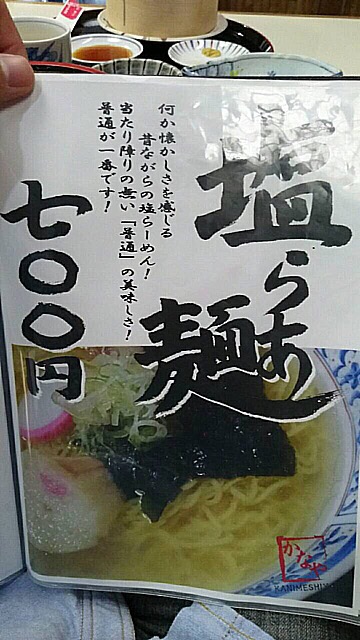 塩らあ麺
何か懐かしさを感じる
昔ながらの塩らーめん！
当たり障りの無い「普通」の美味しさ！
普通が一番です！
七〇〇円
かなや
KANIMESHIYA